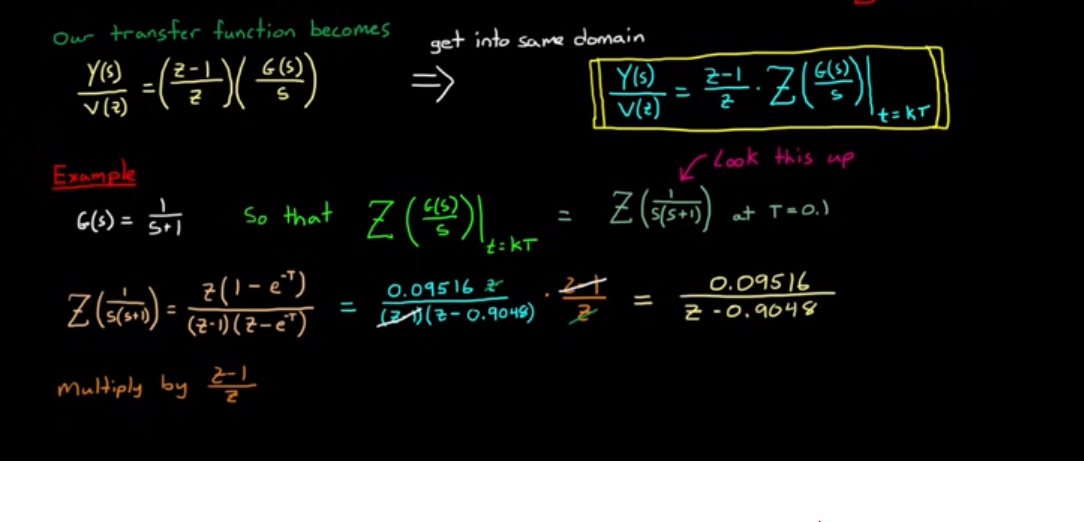 Our transfer function becomes
get into same domain
Y(s)/V(z) = ((z-1)/z)(G(s)/s) ⇒ Y(s)/V(z) = (z-1)/z · Z(G(s)/s)|t=kT
Look this up
Example
G(s) = 1/(s+1) So that Z(G(s)/s)|t=kT = Z(1/(s(s+1))) at T=0.1
Z(1/(s(s+1))) = z(1-e^-T)/((z-1)(z-e^-T)) = 0.09516 z/((z-1)(z-0.9048)) · (z-1)/z = 0.09516/(z-0.9048)
Multiply by (z-1)/z